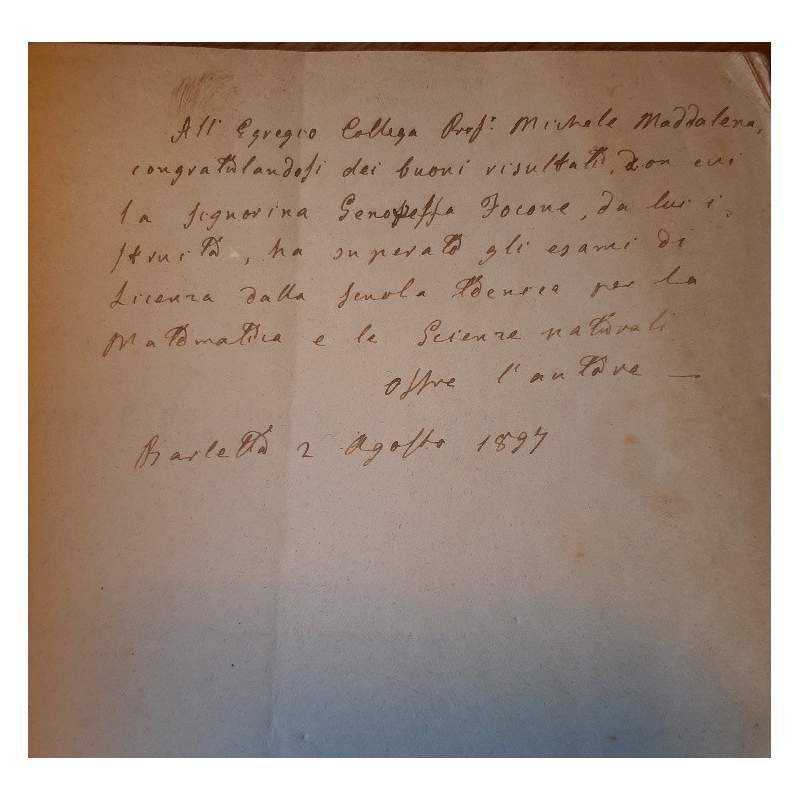 All' Egregio Collega Prof. Michele Maddalena,
congratulandosi dei buoni risultati, con cui
la signorina Focone, da lui i-
struita, ha superato gli esami di
Licenza dalla scuola tecnica per la
Matematica e le Scienze naturali
offre l'autore —
Barletta 2 Agosto 1897